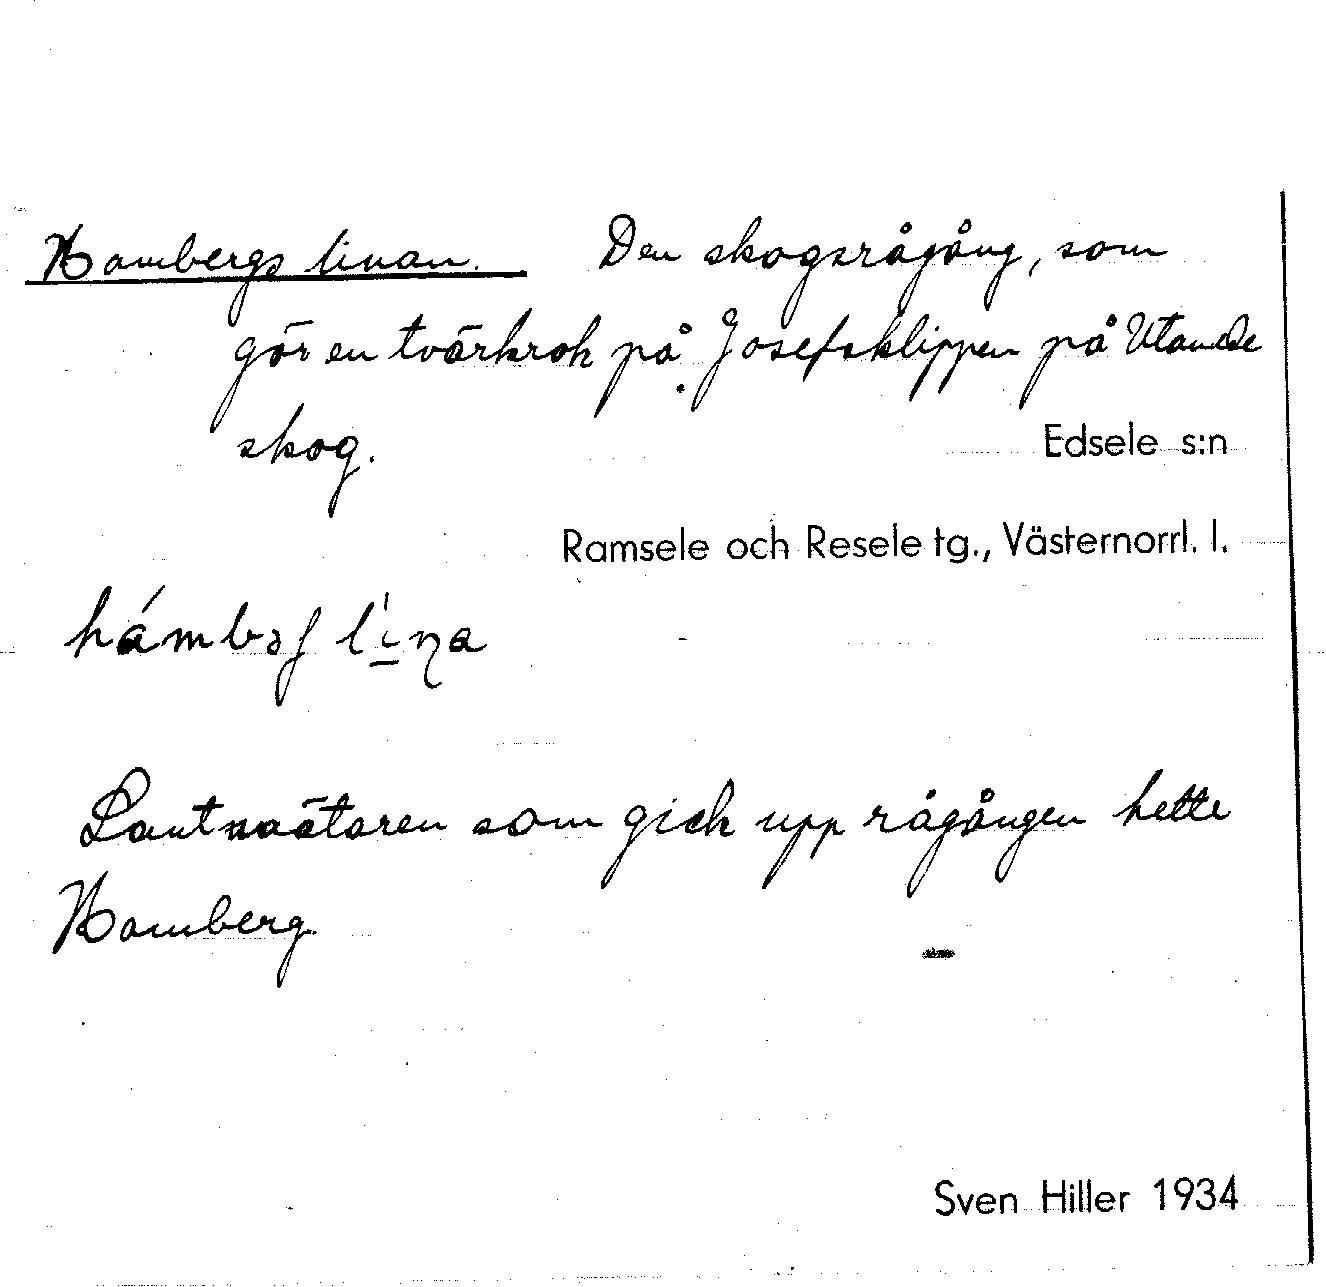 Hambergs linan. Den skogsrågång, som
gör en tvärkrok på Josefsklippen på Utande
skog.
Edsele s:n
Ramsele och Resele tg., Västernorrl. l.
Lantmätaren som gick upp rågången hette
Hamberg.
Sven Hiller 1934